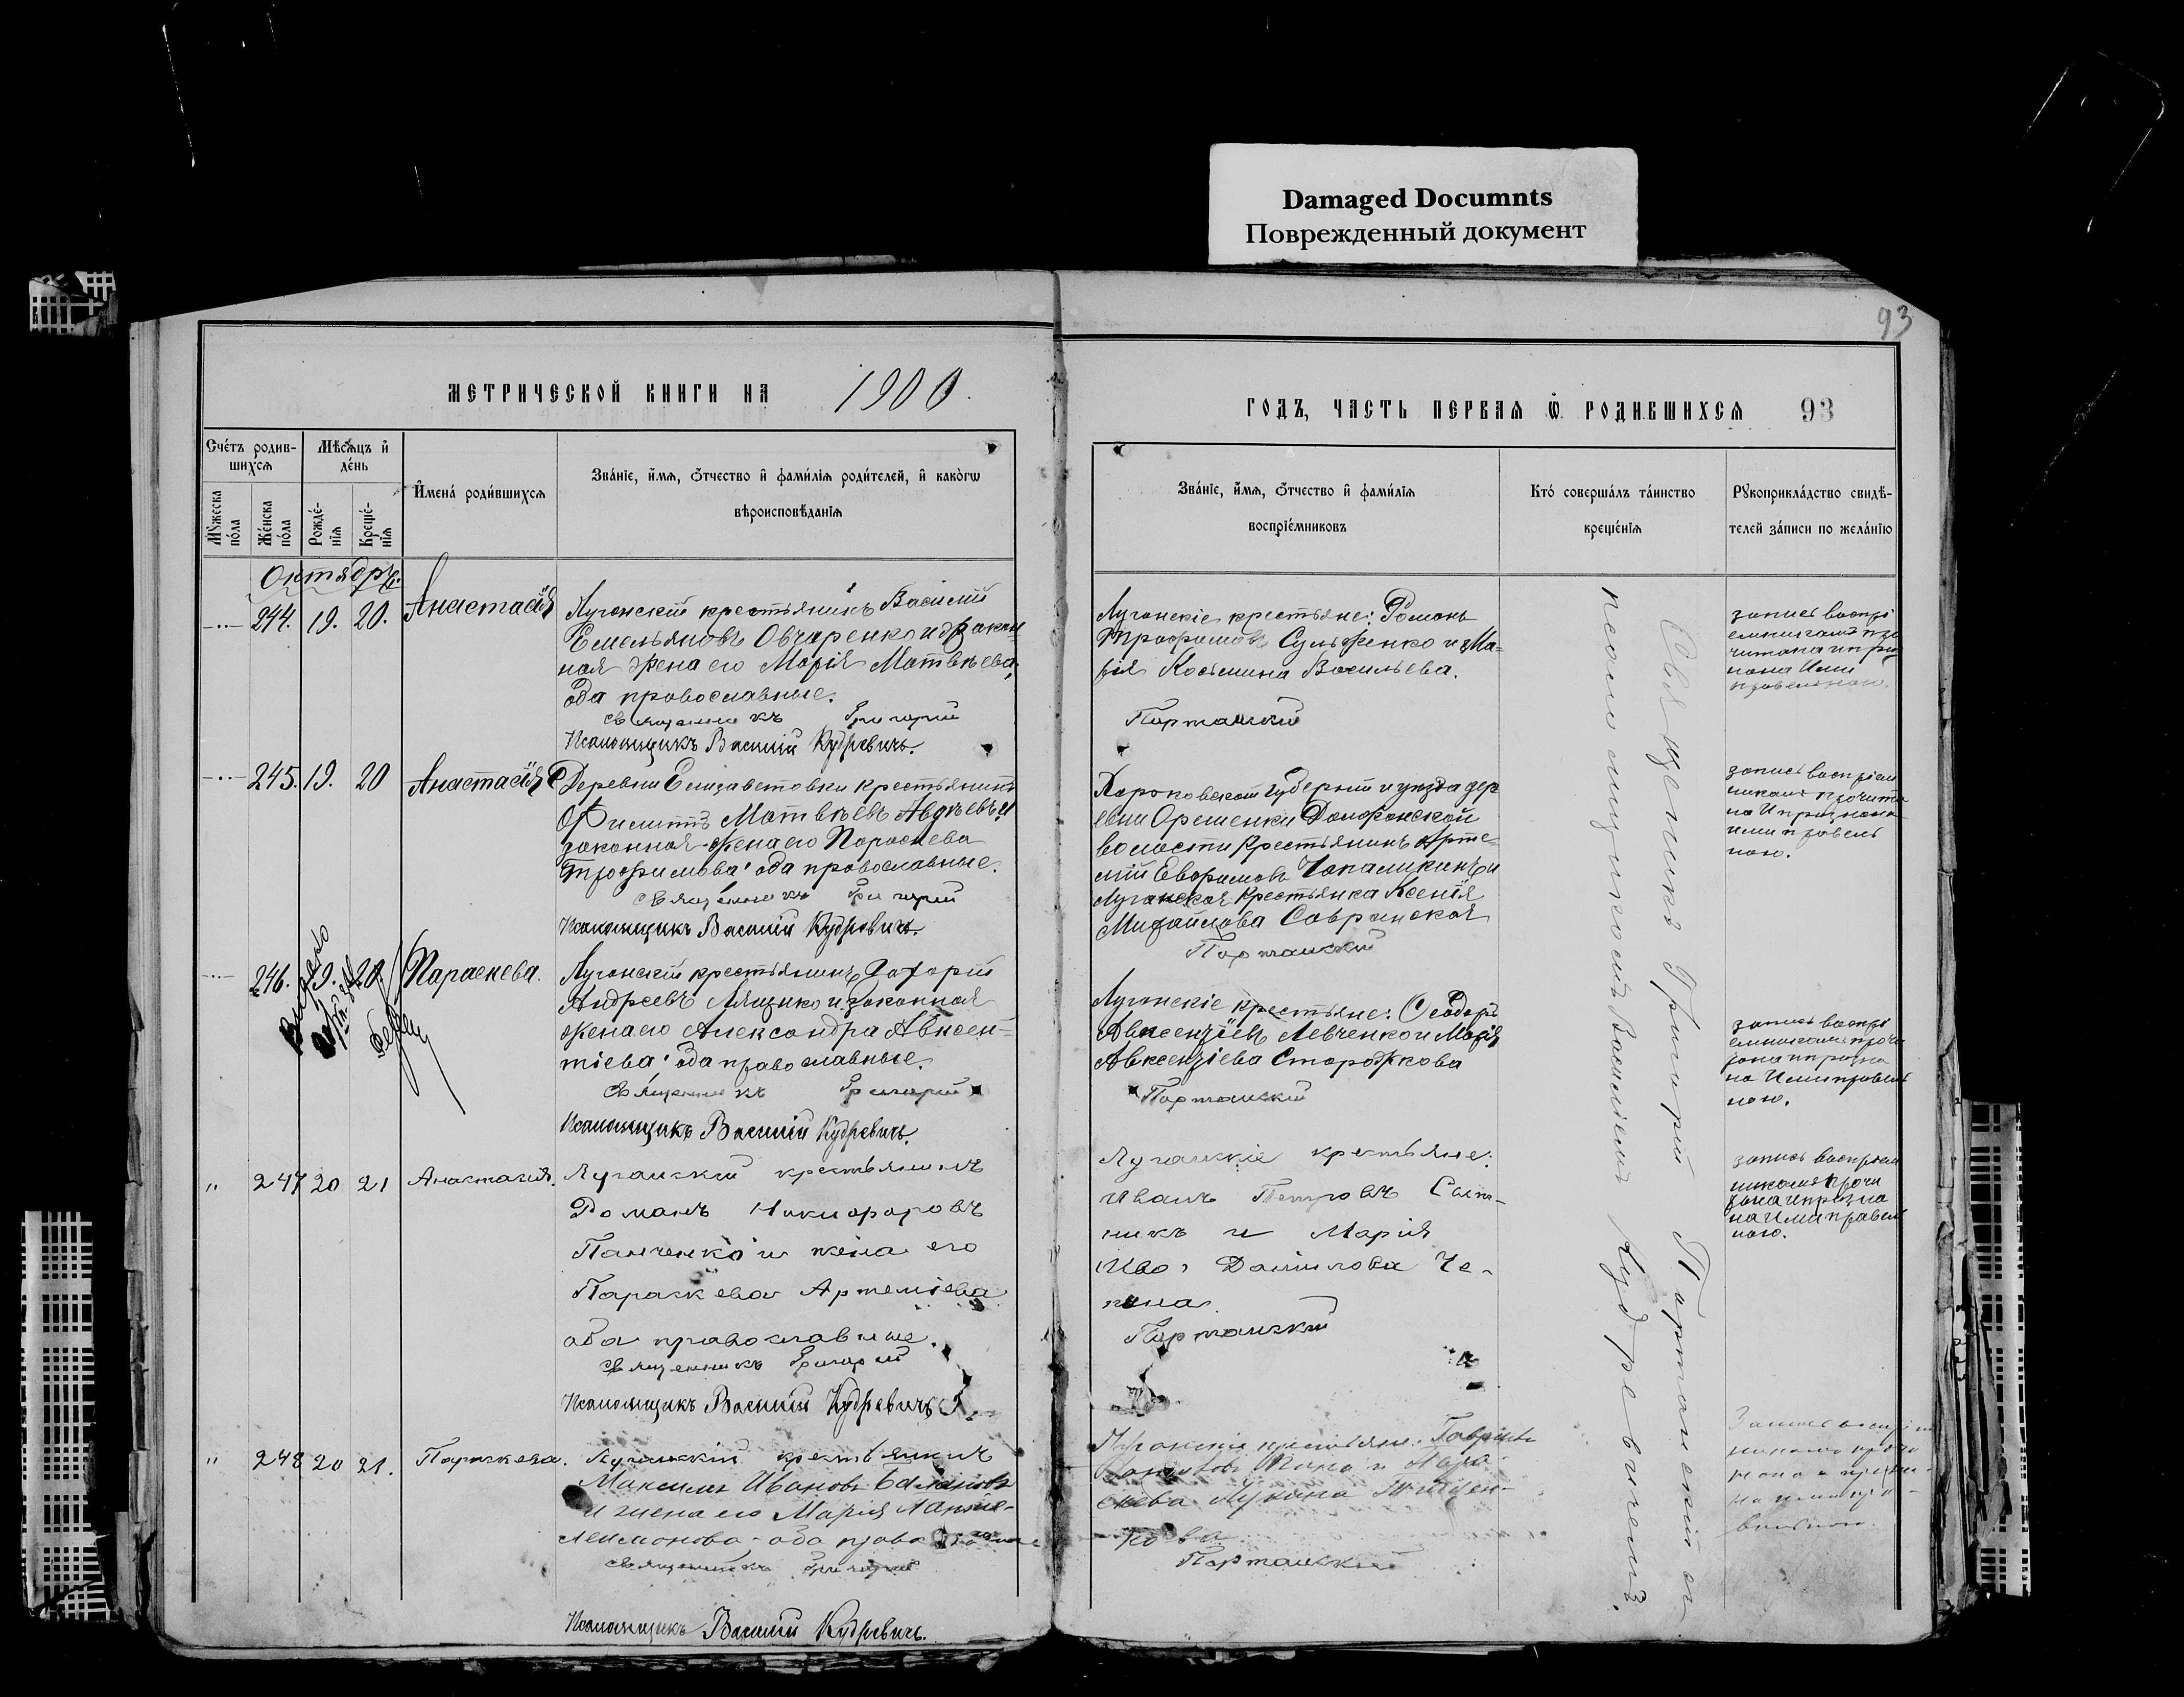 Damaged Documnts
Поврежденный документ
93
МЕТРИЧЕСКОЙ КНИГИ НА 1900
ГОДЪ, ЧАСТЬ ПЕРВАѦ Ѿ РОДИВШИХСѦ 93
Счетъ родив-
шихсѧ
Мѣсѧцъ и
день
Мꙋжеска
пола
Женска
пола
Рожде-
нїѧ
Креще-
нїѧ
Имена родившихсѧ
Званїе, имѧ, ѻтчество и фамилїѧ родителей, и какогѡ
вѣроисповѣданїѧ
Званїе, имѧ, ѻтчество и фамилїѧ
воспрїемниковъ
Кто совершалъ таинство
крещенїѧ
Рꙋкоприкладство свидѣ-
телей записи по желанїю
Октябрь.
244. 19. 20. Анастасія
Луганскій крестьянинъ Василій
Емельяновъ Овчаренко и закон-
ная жена его Марія Матвѣева,
оба православные.
Священникъ Григорій
Псаломщикъ Василій Кудревичъ.
Луганскіе крестьяне: Романъ
Трофимовъ Сульженко и Ма-
рія Косьмина Васильева.
Партанскій
запись воспрі
емниками про
читана и при
нана Ими
правильною.
245. 19. 20 Анастасія
Деревни Елизаветовки крестьянинъ
Филиппъ Матвѣевъ Авдѣевъ и
законная жена его Параскева
Трофимова: оба православные.
Священникъ Григорій
Псаломщикъ Василій Кудревичъ.
Харьковской губерніи и уѣзда дер
евни
волости крестьянинъ Арте-
мій Евфимовъ и
Луганская крестьянка Ксенія
Михайлова Савранская
Партанскій
запись воспріем
никами прочита
на И признана
ими правиль
ною.
246. 19. 20. Параскева.
Луганскій крестьянинъ Захарій
Андреевъ Лящико и законная
жена его Александра Авксен-
тіева: оба православные.
Священникъ Григорій
Псаломщикъ Василій Кудревичъ.
Луганскіе крестьяне: Ѳеодоръ
Авксентіевъ Левченко и Марія
Авксентіева Сторожкова
Партанскій
запись воспрі
емниками прочи
тана и призна
на Ими правиль
ною.
" 247 20 21 Анастасія.
Луганскій крестьянинъ
Романъ Никифоровъ
Панченко и жена его
Параскева Артеміева
оба православные.
Священникъ Григорій
Псаломщикъ Василій Кудревичъ
Луганскіе крестьяне:
Иванъ Петровъ
никъ и Марія
Данилова Че-
Партанскій
запись воспріем
никами прочи
тана и призна
на Ими правиль
ною.
" 248 20 21. Параскева.
Луганскій крестьянинъ
Максимъ Ивановъ
и жена его Марія
оба православные
Священникъ Григорій
Псаломщикъ Василій Кудревичъ.
Луганскіе крестьяне: Гавріилъ
и Пара-
скева Лукина
кова
Партанскій
Запись воспріем
никами прочи
тана и призна-
на ими пра-
вильною.
Священникъ Григорій Партанскій съ
псаломщикомъ Василіемъ Кудревичемъ.